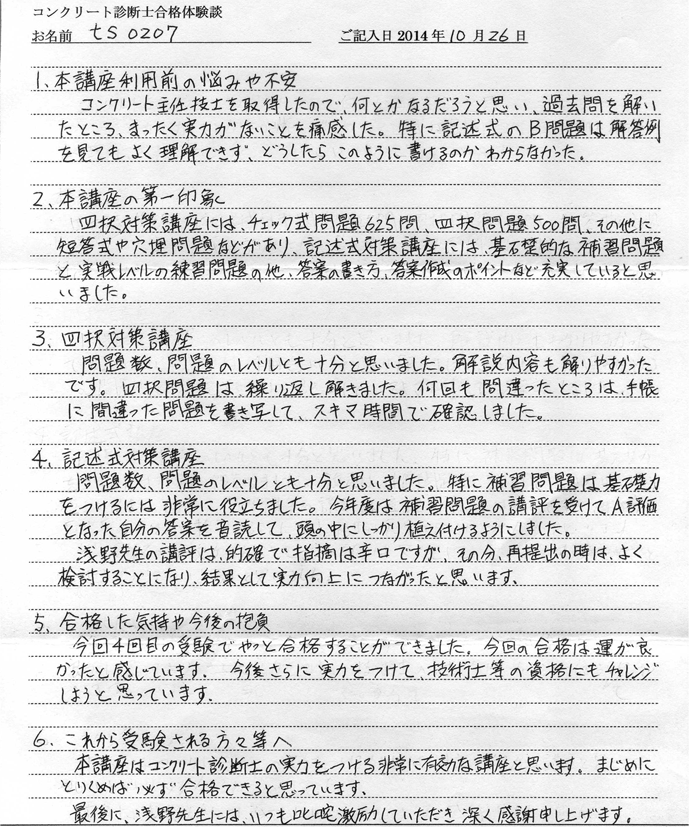 コンクリート診断士合格体験談
お名前 ts0207 ご記入日 2014年10月26日
1、本講座利用前の悩みや不安
コンクリート主任技士を取得したので、何とかなるだろうと思い、過去問を解い
たところ、まったく実力がないことを痛感した。特に記述式のB問題は解答例
を見てもよく理解できず、どうしたらこのように書けるのかわからなかった。
2、本講座の第一印象
四択対策講座には、チェック式問題625問、四択問題500問、その他に
短答式や穴埋問題などがあり、記述式対策講座には、基礎的な補習問題
と実戦レベルの練習問題の他、答案の書き方、答案作成のポイントなど充実していると思
いました。
3、四択対策講座
問題数、問題のレベルとも十分と思いました。解説内容も解りやすかった
です。四択問題は繰り返し解きました。何回も間違ったところは、手帳
に間違った問題を書き写して、スキマ時間で確認しました。
4、記述式対策講座
問題数、問題のレベルとも十分と思いました。特に補習問題は基礎力
をつけるには非常に役立ちました。今年度は補習問題の講評を受けてA評価
となった自分の答案を音読して、頭の中にしっかり植え付けるようにしました。
浅野先生の講評は、的確で指摘は辛口ですが、その分、再提出の時は、よく
検討することになり、結果として実力向上につながったと思います。
5、合格した気持や今後の抱負
今回4回目の受験でやっと合格することができました。今回の合格は運が良
かったと感じています。今後さらに実力をつけて、技術士等の資格にもチャレンジ
しようと思っています。
6、これから受験される方々等へ
本講座はコンクリート診断士の実力をつける非常に有効な講座と思います。まじめに
とりくめば必ず合格できると思っています。
最後に、浅野先生には、いつも叱咤激励していただき深く感謝申し上げます。